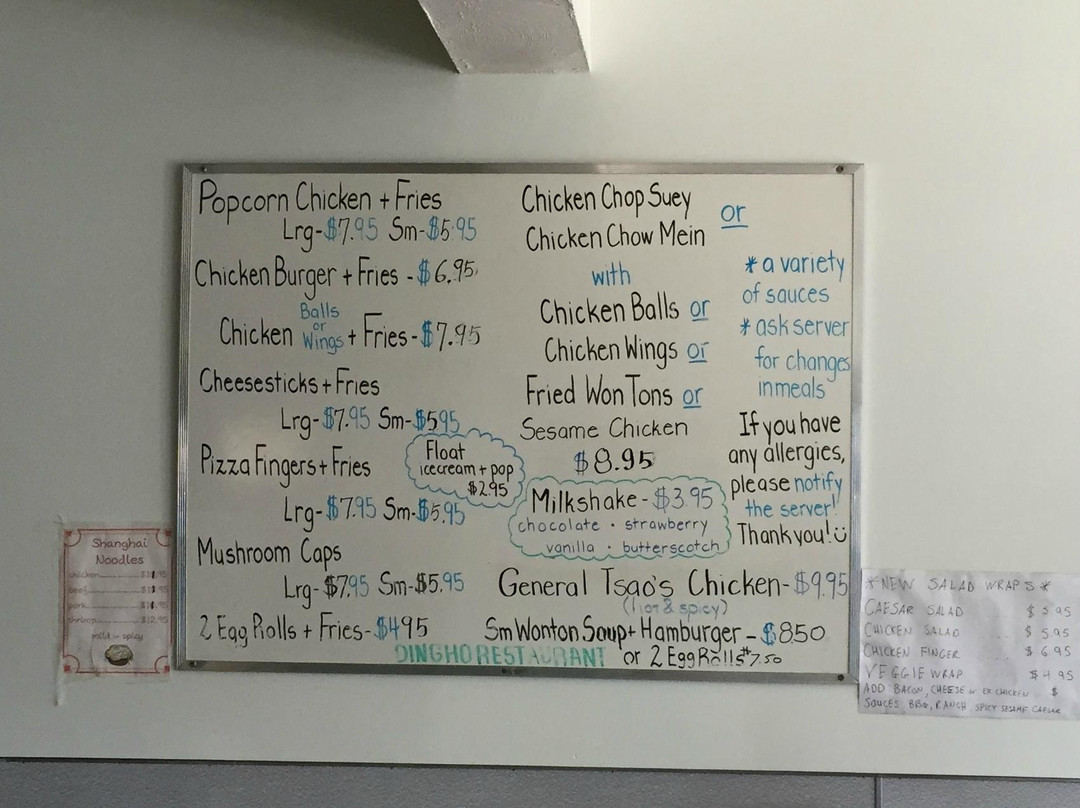 Popcorn Chicken + Fries
Lrg-$7.95 Sm-$5.95
Chicken Burger + Fries - $6.95
Chicken Balls or Wings + Fries - $7.95
Cheesesticks + Fries
Lrg-$7.95 Sm-$5.95
Pizza Fingers + Fries
Lrg-$7.95 Sm-$5.95
Mushroom Caps
Lrg-$7.95 Sm-$5.95
2 Egg Rolls + Fries-$4.95
Float
icecream + pop
$2.95
Chicken Chop Suey or
Chicken Chow Mein
with
Chicken Balls or
Chicken Wings or
Fried Won Tons or
Sesame Chicken
$8.95
Milkshake - $3.95
chocolate · strawberry
vanilla · butterscotch
General Tsao's Chicken-$9.95
(hot & spicy)
Sm Wonton Soup + Hamburger - $8.50
or 2 Egg Rolls $7.50
DINGHO RESTAURANT
* a variety
of sauces
* ask server
for changes
in meals
If you have
any allergies,
please notify
the server!
Thank you!
Shanghai
Noodles
chicken
Beef
pork
shrimp $12.95
mild or spicy
*NEW SALAD WRAPS*
CAESAR SALAD $ 5.95
CHICKEN SALAD $ 5.95
CHICKEN FINGER $ 6.95
VEGGIE WRAP $4.95
ADD: BACON, CHEESE or EX CHICKEN $
SAUCES: BBQ, RANCH SPICY SESAME CAESAR